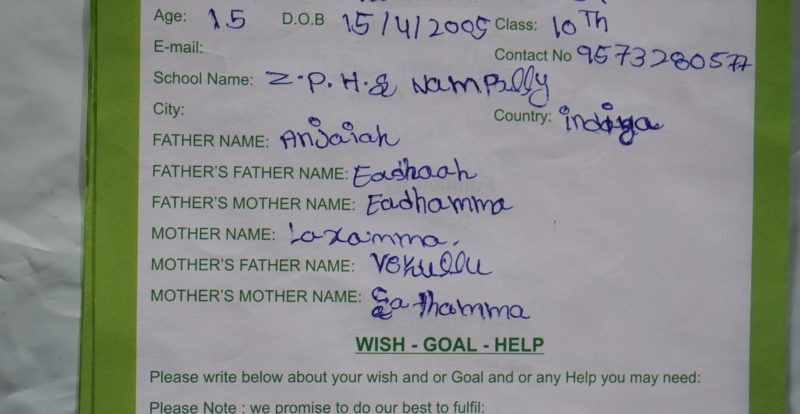 Age: 15 D.O.B 15/4/2005 Class: 10Th
E-mail: Contact No 9573280577
School Name: Z.P.H.S Nampally
City: Country: indiya
FATHER NAME: Anjaiah
FATHER'S FATHER NAME: Eadhaah
FATHER'S MOTHER NAME: Eadhamma
MOTHER NAME: Laxamma.
MOTHER'S FATHER NAME:
MOTHER'S MOTHER NAME: Sathamma
WISH - GOAL - HELP
Please write below about your wish and or Goal and or any Help you may need:
Please Note : we promise to do our best to fulfil: